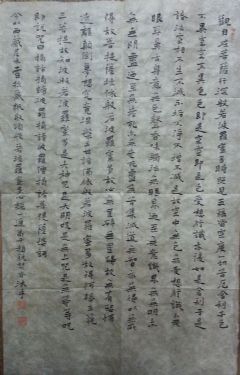 觀自在菩薩行深般若波羅蜜多時照見五蘊皆空度一切苦厄舍利子色
不異空空不異色色即是空空即是色受想行識亦復如是舍利子是
諸法空相不生不滅不垢不淨不增不減是故空中無色無受想行識無
眼耳鼻舌身意無色聲香味觸法無眼界乃至無意識界無無明亦
無無明盡乃至無老死亦無老死盡無苦集滅道無智亦無得以無所
得故菩提薩埵依般若波羅蜜多故心無罣礙無罣礙故無有恐怖
遠離顛倒夢想究竟涅槃三世諸佛依般若波羅蜜多故得阿耨多羅三藐
三菩提故知般若波羅蜜多是大神咒是大明咒是無上咒是無等等咒
即說咒曰揭諦揭諦波羅揭諦波羅僧揭諦菩提薩婆訶
般若波羅蜜多心經一遍